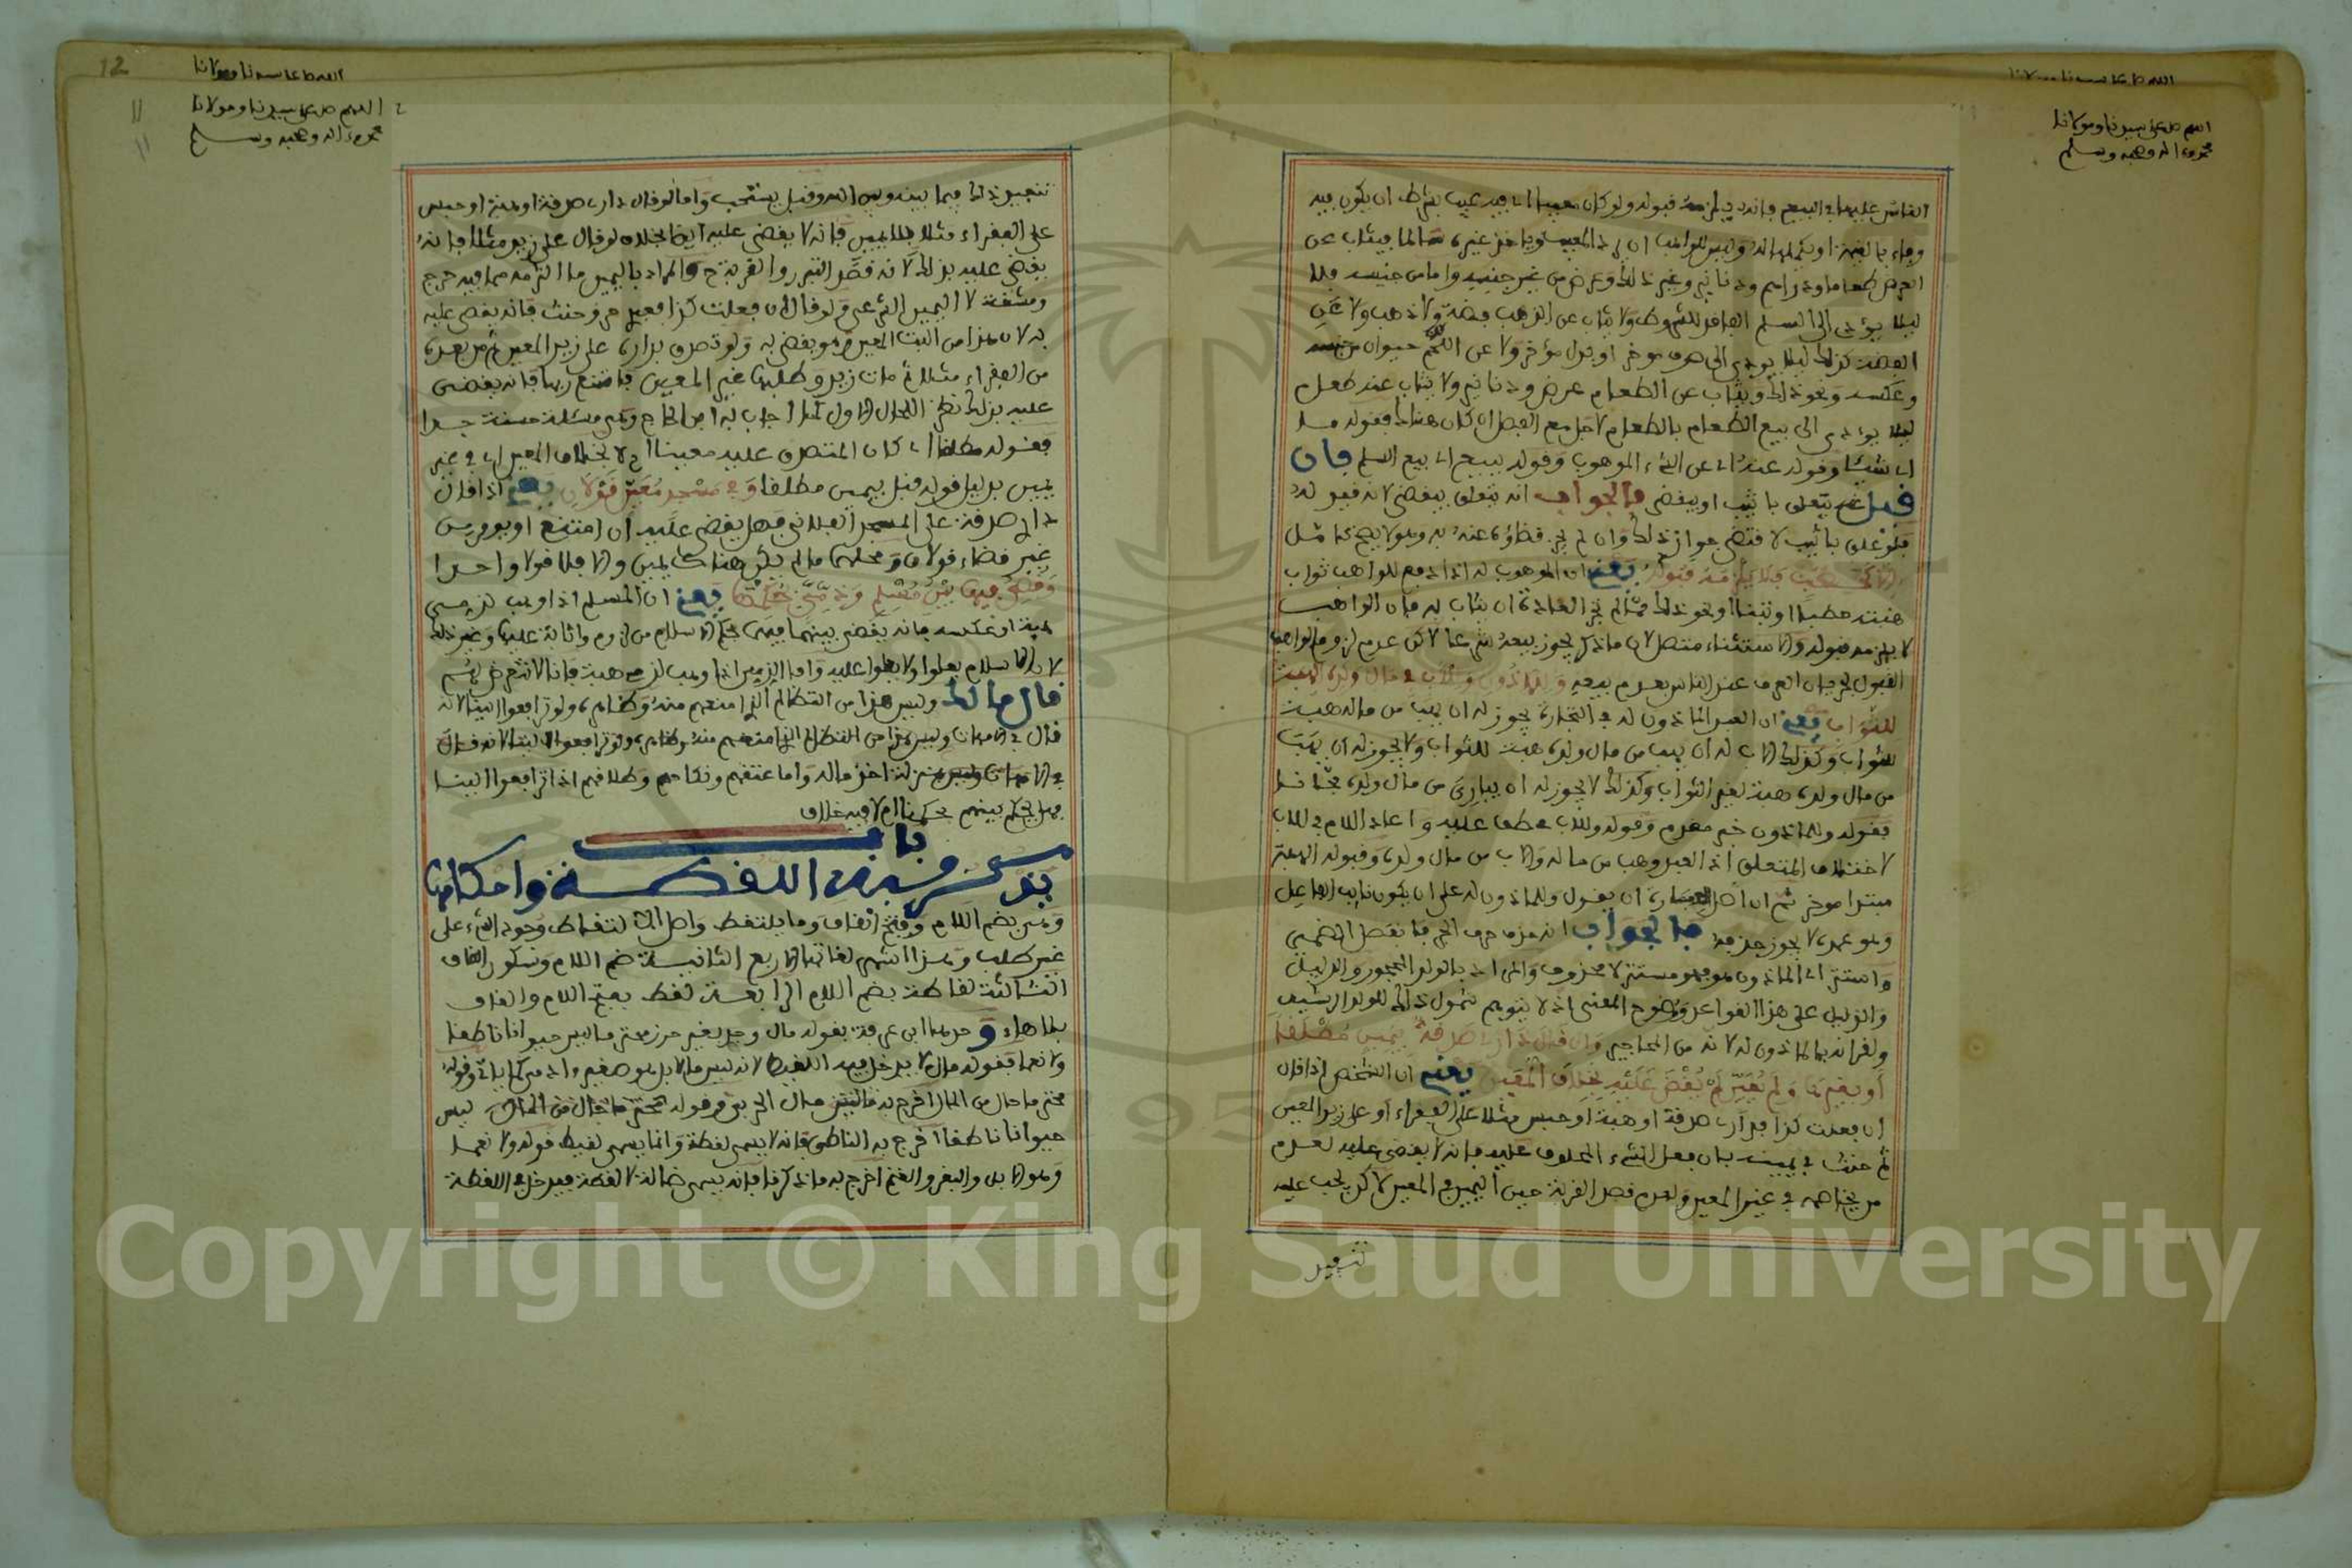 اللهم صل على سيدنا ومولانا
محمد وءاله وصحبه وسلم
الناس عليها في البيع فانه يلزمه قبوله ولو كان معيبا اي فيه عيب بشرط ان يكون فيه
وفاء بالقيمة او يكملها له وليس للواهب ان يرد المعيب وياخذ غيره سالما فيثاب عن
العرض طعاما ودراهم ودنانير وغير ذلك وعرض من غير جنسه واما من جنسه فلا
ليلا يؤدي الى السلم الفاقد للشروط ولا يثاب عن الذهب فضة ولا ذهب ولا عن
الفضة كذلك ليلا يودي الى صرف موخر او بدل مؤخر ولا عن اللحم حيوان من جنسه
وعكسه ونحو ذلك ويثاب عن الطعام عرض ودنانير ولا يثاب عنه طعام
ليلا يؤدي الى بيع الطعام بالطعام لاجل مع الفضل ان كان هناك فقوله ما
اي شيئا وقوله عنه اي عن الشيء الموهوب وقوله ببيع اي بيع السلم فان
قيل عنه يتعلق باثيب او بيقضى فالجواب انه يتعلق بيقضى لانه قيد له
فلو علق باثيب لاقتضى جواز ذلك وان لم يجز قضاؤه عنه به وهو لا يصح
الا كحطب فلا يلزمه قبوله يعني ان الموهوب له اذا دفع للواهب ثواب
هبته حطبا او تبنا او نحو ذلك مما لم تجر العادة ان يثاب به فان الواهب
لا يلزمه قبوله والاستثناء متصل لان ما ذكر يجوز بيعه شرعا لاكن عدم لزوم الواهب
القبول لجريان العرف عند الناس بعدم بيعه وللماذون وللاب في مال ولده الهبة
للثواب يعني ان العبد الماذون له في التجارة يجوز له ان يهب من ماله هبة
للثواب وكذلك الاب له ان يهب من مال ولده هبة للثواب ولا يجوز له ان يهب
من مال ولده هبة لغير الثواب وكذلك لا يجوز له ان يبارئ من مال ولده مجانا
فقوله وللماذون خبر مقدم وقوله وللاب عطف عليه واعاد اللام في للاب
لاختلاف المتعلق اذ العبد وهب من ماله والاب من مال ولده وقوله الهبة
مبتدا موخر ثم ان اصل العبارة ان يقول وللماذون له على ان يكون نايب الفاعل
وهو عمدة لا يجوز حذفه فالجواب انه حذف حرف الجر فانفصل الضمير
واستتر اي الماذون هو فهو مستتر لا محذوف والمراد بالولد المحجور والدليل
والدليل على هذا القواعد ووضوح المعنى اذ لا يتوهم شمول ذلك للولد الرشيد
ولقرانه بالماذون له لانه من المحاجير وان قال داري صدقة بيمين مطلقا
او بغيرها ولم يعين لم يقض عليه بخلاف المعين يعني ان الشخص اذا قال
ان فعلت كذا فداري صدقة او هبة او حبس مثلا على الفقراء او على زيد المعين
ثم حنث في يمينه بان فعل الشيء المحلوف عليه فانه لا يقضى عليه لعدم
من يخاصمه في غير المعين ولعدم قصد القربة حين اليمين في المعين لاكن يجب عليه
تنجيز
12
11
11
اللهم صل على سيدنا ومولانا
محمد وءاله وصحبه وسلم
تنجيز ذلك فيما بينه وبين الله وقيل يستحب واما لو قال داري صدقة او هبة او حبس
على الفقراء مثلا بلا يمين فانه لا يقضى عليه ايضا بخلاف لو قال على زيد مثلا فانه
يقضى عليه بذلك لانه قصد التبرر والقربة ح والمراد باليمين ما التزمه مما فيه حرج
ومشقة لا اليمين الشرعي ولو قال ان فعلت كذا فعبدي حر وحنث فانه يقضى عليه
به لان هذا من البت المعين وهو يقضى به ولو تصدق بداره على زيد المعين ثم من بعده
من الفقراء مثلا ثم مات زيد وطلبها غير المعين فامتنع ربها فانه يقضى
عليه بذلك نظرا للحال الاول كما اجاب به ابن الحاج وهي مسئلة حسنة جدا
فقوله مطلقا اي كان المتصدق عليه معينا ام لا بخلاف المعين اي في غير
يمين بدليل قوله قبل بيمين مطلقا وفي مسجد معين قولان يعني اذا قال
داري صدقة على المسجد الفلاني فهل يقضى عليه ان امتنع او يومر من
غير قضاء قولان ومحلهما ما لم يكن هناك يمين والا فلا قولا واحدا
وقضي فيها بين مسلم وذمي بحكمنا يعني ان المسلم اذا وهب لذمي
هبة او عكسه فانه يقضى بينهما فيها بحكم الاسلام من لزوم واثابة عليها وغير ذلك
لان الاسلام يعلوا ولا يعلوا عليه واما الذمي اذا وهب لذمي هبة فانا لا نتعرض لهم
قال مالك وليس هذا من التظالم الذي امنعهم منه وظاهره ولو ترافعوا الينا لانه
قال في الامهات وليس هذا من التظالم الذي امنعهم منه وظاهره ولو ترافعوا الينا لانه قال
في الامهات وليس منزلة اخذ ماله واما عتقهم ونكاحهم وطلاقهم اذا ترافعوا الينا
فهل يحكم بينهم بحكمنا ام لا فيه خلاف
باب
يذكر فيه اللقطة واحكامها
وهي بضم اللام وفتح القاف وما يلتقط واصل الالتقاط وجود الشيء على
غير طلب وهذا اشهر لغاتها الاربع الثانية ضم اللام وسكون القاف
الثالثة لقاطة بضم اللام الرابعة لقط بفتح اللام والقاف
بلا هاء وحدها ابن عرفة بقوله مال وجد بغير حرز محترما ليس حيوانا ناطقا
ولا نعما فقوله مال لا يدخل فيه اللقيط لانه ليس مالا بل هو صغير ءادمي كما ياتي وقوله
محترما حال من المال اخرج به مال الحربي وقوله ليس
حيوانا ناطقا اخرج به الناطق فانه لا يسمى لقطة وانما يسمى لقيط قوله ولا نعما
وهو الابل والبقر والغنم اخرج به ما ذكر فانه يسمى ضالة لا لقطة فيدخل في اللقطة
Copyright © King Saud University